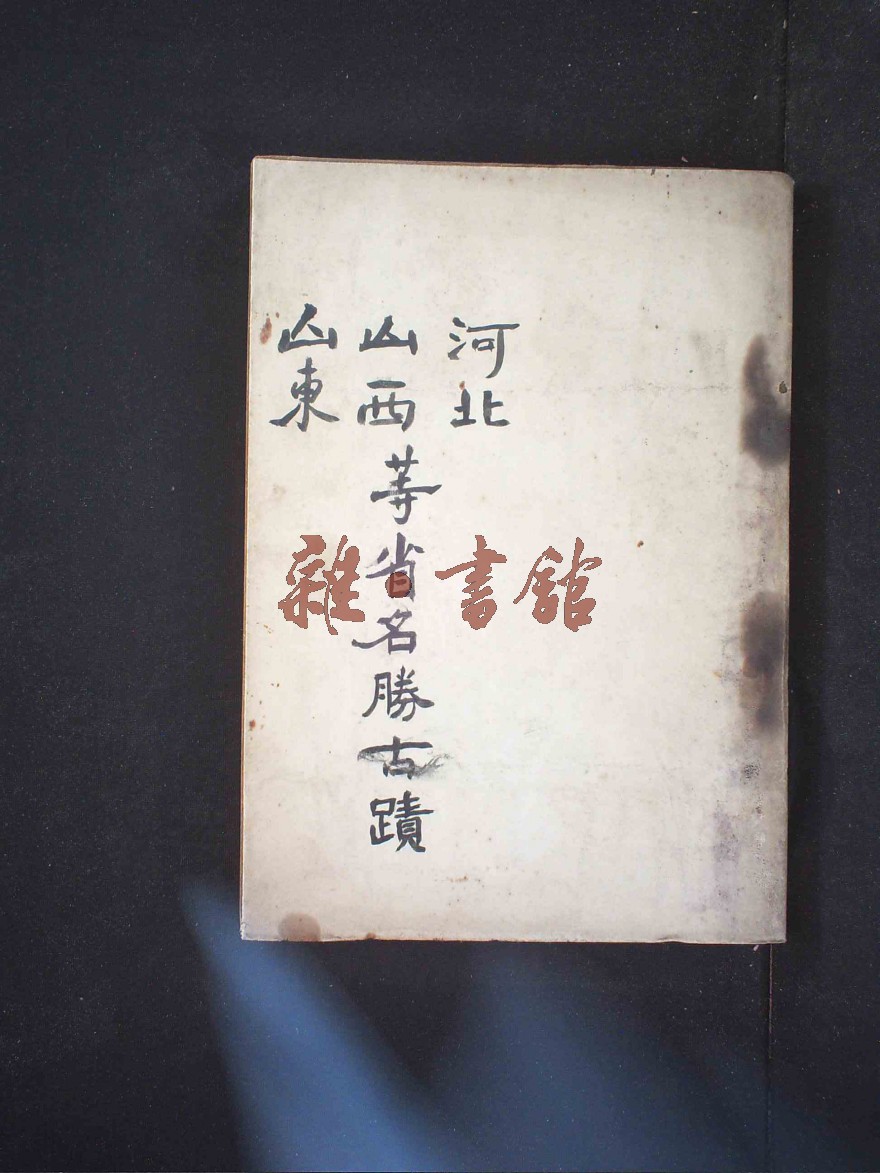 河北
山西等省名勝古蹟
山東
雜書館